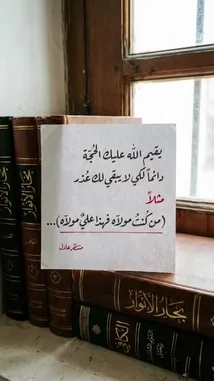 يقيم الله عليك الحُجّة
دائماً لكي لا يبقى لك عُذر
مثلاً
(من كُنتُ مولاه فهذا عليٌ مولاه)...
منتظر عادل
بحار الأنوار
بحار الأنوار
بحار الأنوار
الكافي